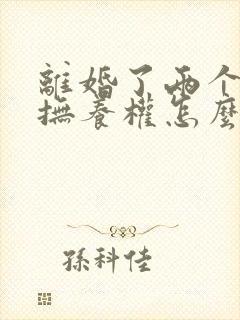 離婚了两个
撫養權怎麼
孫科佳